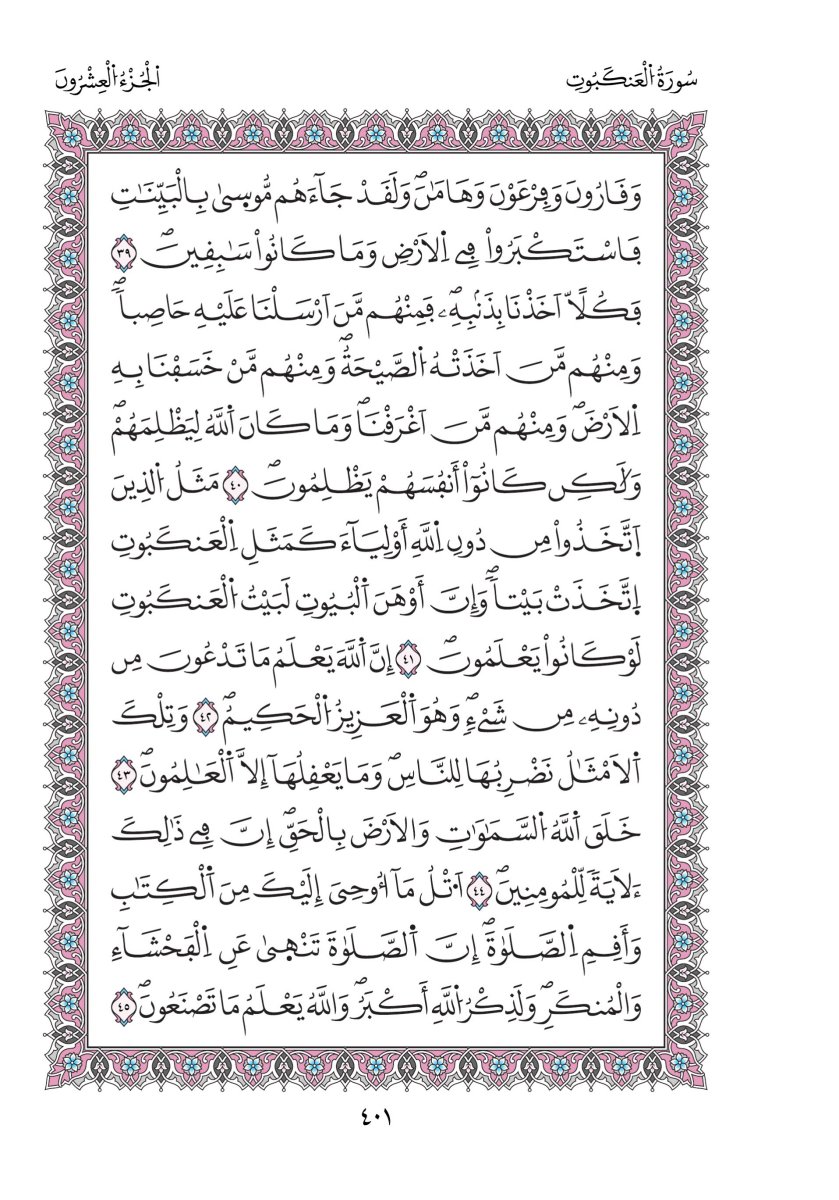 سُورَةُ اُ۬لْعَنكَبُوتِ
اَ۬لْجُزْءُ اُ۬لْعِشْرُونَ
وَقَٰرُونَ وَفِرْعَوْنَ وَهَٰمَٰنَۖ وَلَقَدْ جَآءَهُم مُّوس۪ىٰ بِالْبَيِّنَٰتِ
فَاسْتَكْبَرُواْ فِے اِ۬لَارْضِ وَمَا كَانُواْ سَٰبِقِينَۖ ٣٩
فَكُلّاً اَخَذْنَا بِذَنۢبِهِۦۖ فَمِنْهُم مَّنَ اَرْسَلْنَا عَلَيْهِ حَاصِباًۖ
وَمِنْهُم مَّنَ اَخَذَتْهُ اُ۬لصَّيْحَةُۖ وَمِنْهُم مَّنْ خَسَفْنَا بِهِ
اِ۬لَارْضَۖ وَمِنْهُم مَّنَ اَغْرَقْنَاۖ وَمَا كَانَ اَ۬للَّهُ لِيَظْلِمَهُمْۖ
وَلَٰكِن كَانُوٓاْ أَنفُسَهُمْ يَظْلِمُونَۖ ٤٠ مَثَلُ اُ۬لذِينَ
اَ۪تَّخَذُواْ مِن دُونِ اِ۬للَّهِ أَوْلِيَآءَ كَمَثَلِ اِ۬لْعَنكَبُوتِ
اِ۪تَّخَذَتْ بَيْتاًۖ وَإِنَّ أَوْهَنَ اَ۬لْبُيُوتِ لَبَيْتُ اُ۬لْعَنكَبُوتِ
لَوْ كَانُواْ يَعْلَمُونَۖ ٤١ إِنَّ اَ۬للَّهَ يَعْلَمُ مَا تَدْعُونَ مِن
دُونِهِۦ مِن شَےْءٖۖ وَهُوَ اَ۬لْعَزِيزُ اُ۬لْحَكِيمُۖ ٤٢ وَتِلْكَ
اَ۬لَامْثَٰلُ نَضْرِبُهَا لِلنَّاسِۖ وَمَا يَعْقِلُهَآ إِلَّا اَ۬لْعَٰلِمُونَۖ ٤٣
خَلَقَ اَ۬للَّهُ اُ۬لسَّمَٰوَٰتِ وَالَارْضَ بِالْحَقِّۖ إِنَّ فِے ذَٰلِكَ
ءَلَايَةٗ لِّلْمُومِنِينَۖ ٤٤ اَ۟تْلُ مَآ أُوحِيَ إِلَيْكَ مِنَ اَ۬لْكِتَٰبِ
وَأَقِمِ اِ۬لصَّلَوٰةَۖ إِنَّ اَ۬لصَّلَوٰةَ تَنْه۪ىٰ عَنِ اِ۬لْفَحْشَآءِ
وَالْمُنكَرِۖ وَلَذِكْرُ اُ۬للَّهِ أَكْبَرُۖ وَاللَّهُ يَعْلَمُ مَا تَصْنَعُونَۖ ٤٥
٤٠١